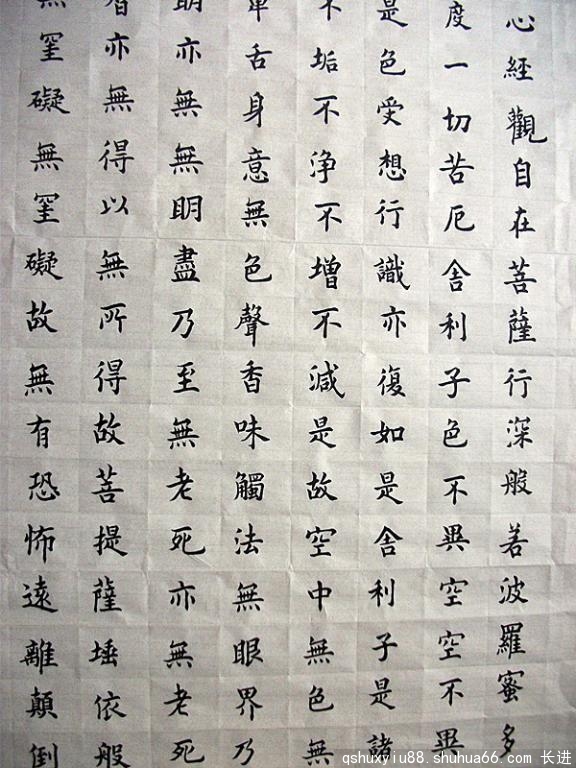 心經觀自在菩薩行深般若波羅蜜多
度一切苦厄舍利子色不異空空不異
是色受想行識亦復如是舍利子是諸
不垢不浄不增不減是故空中無色無
鼻舌身意無色聲香味觸法無眼界乃
眀亦無無眀盡乃至無老死亦無老死
智亦無得以無所得故菩提薩埵依般
無罣礙無罣礙故無有恐怖遠離顛倒
qshuxyiu88.shuhua66.com 长进